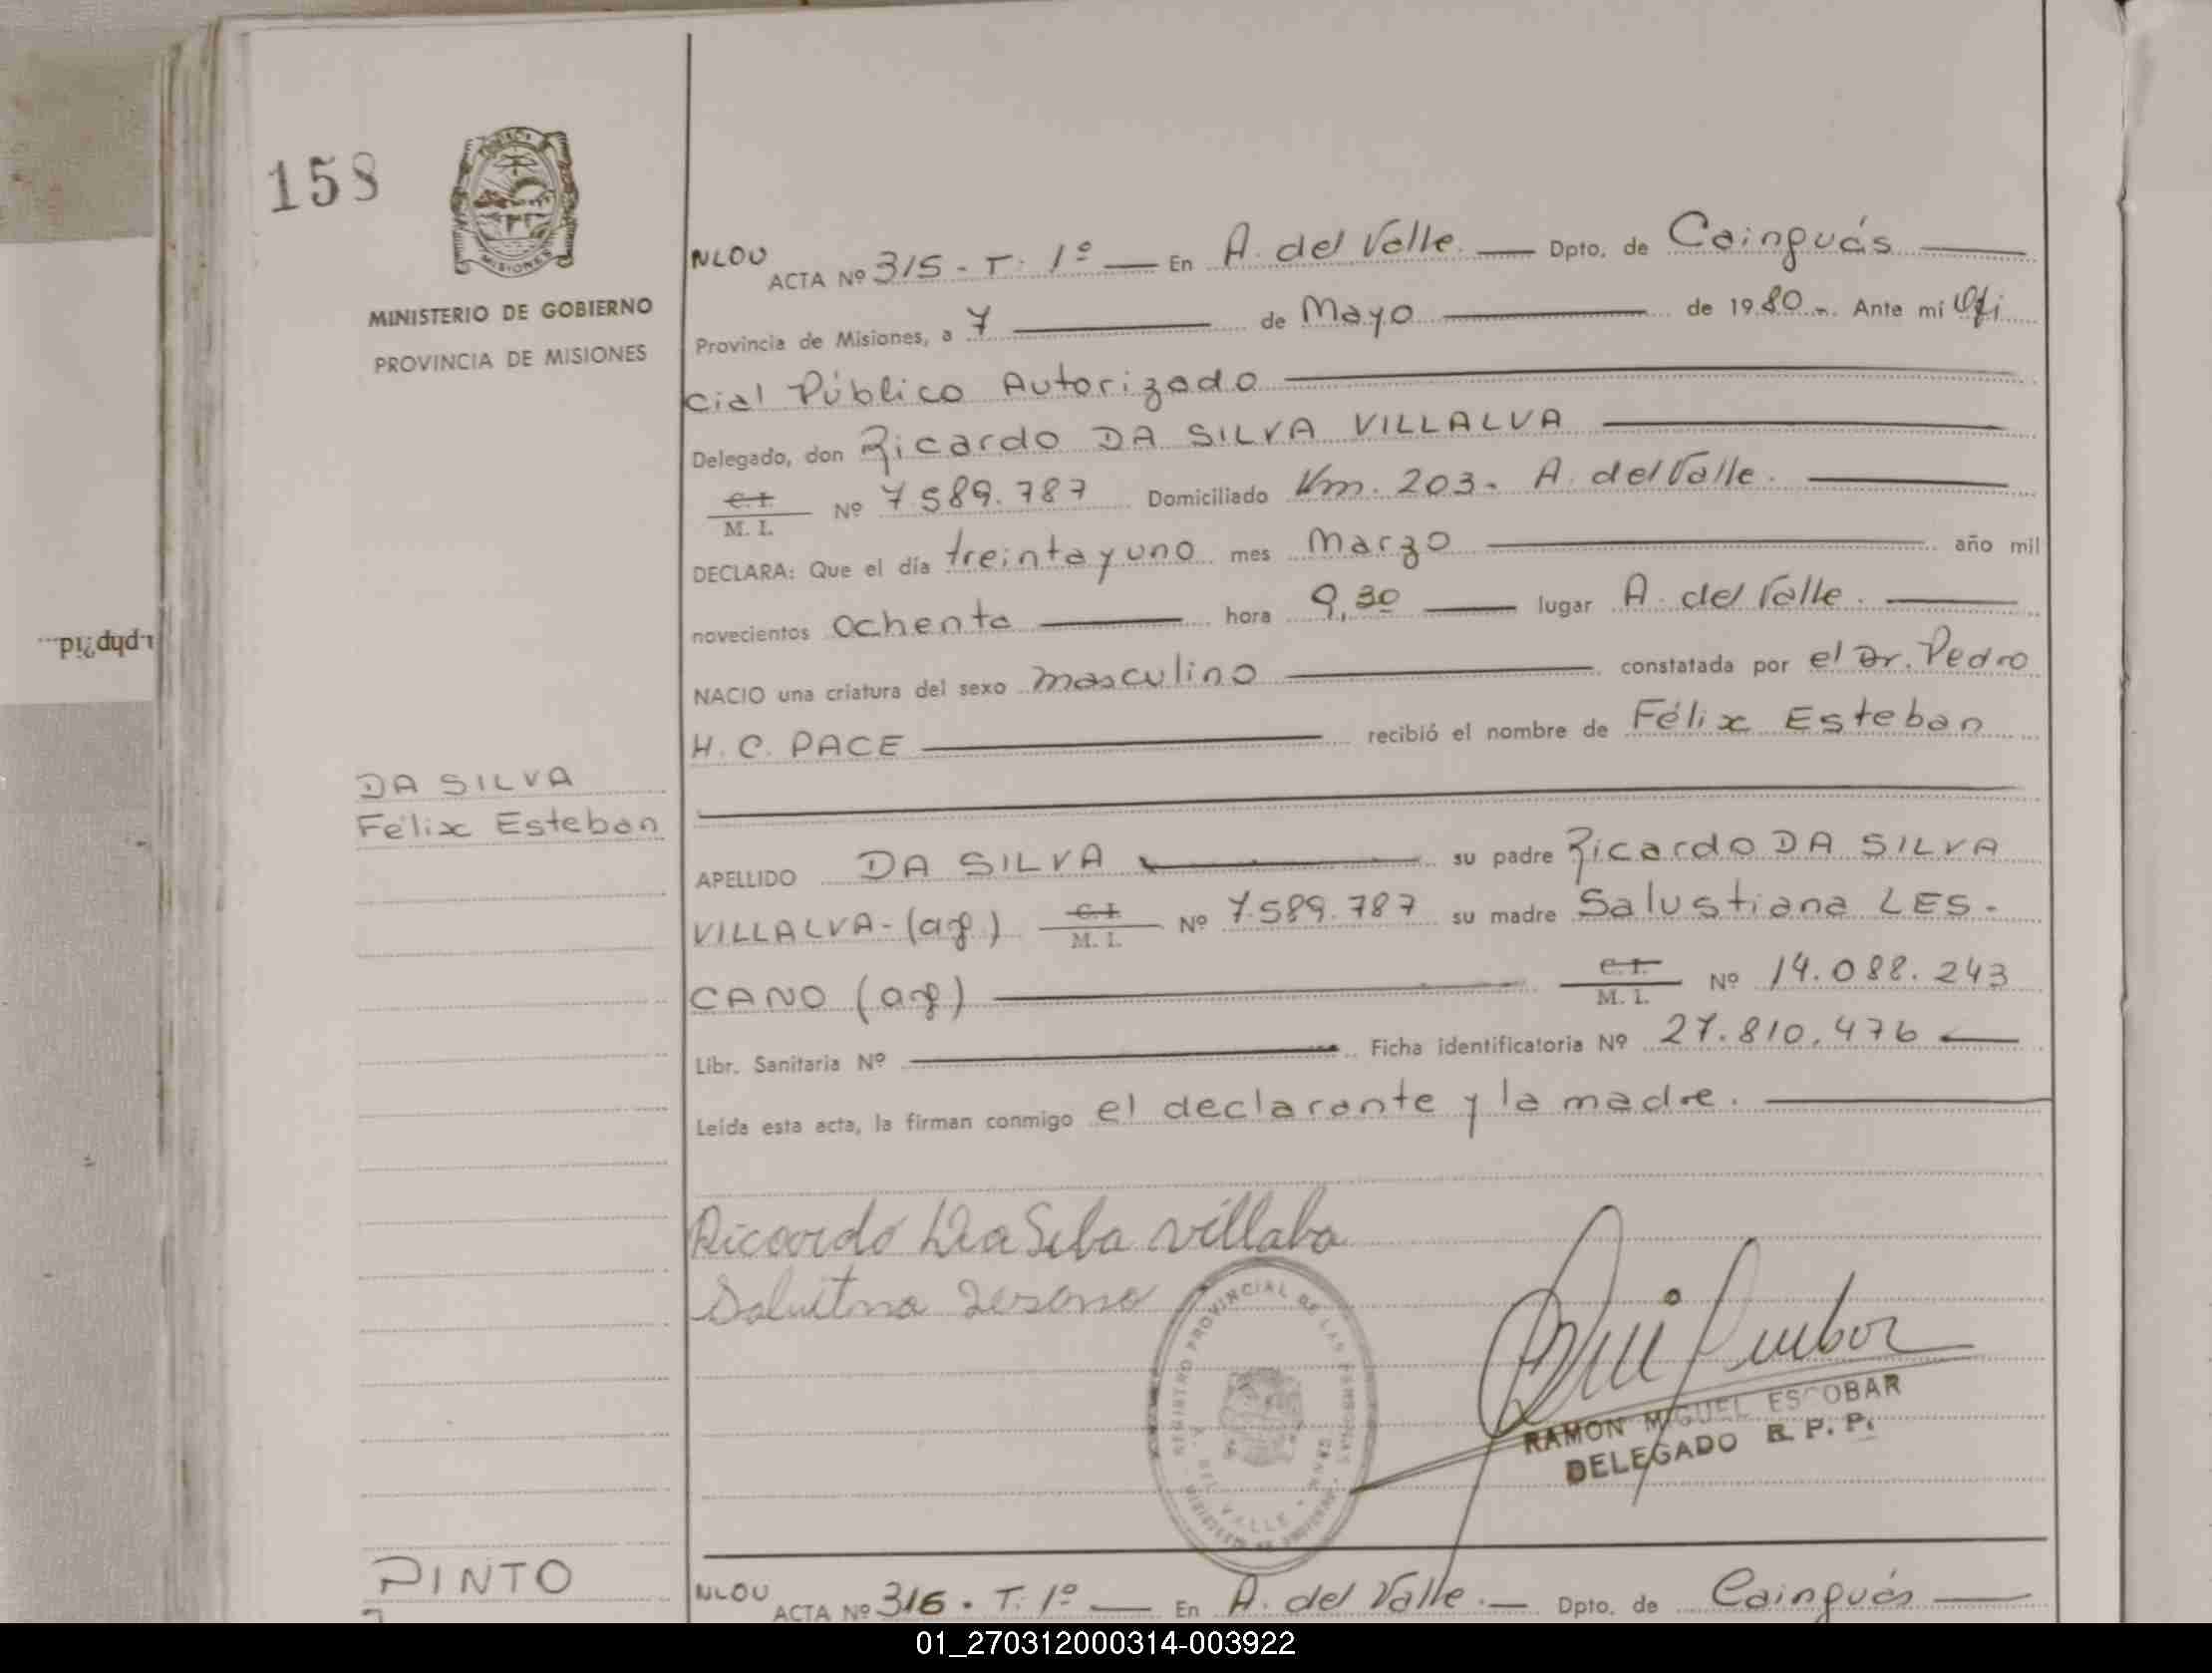 158
MISIONES
MINISTERIO DE GOBIERNO
PROVINCIA DE MISIONES
NLOU ACTA Nº 315 - T. 1º — En A. del Valle. — Dpto. de Cainguás —
Provincia de Misiones, a 7 — de Mayo — de 1980 -. Ante mí Ofi
cial Público Autorizado —
Delegado, don Ricardo DA SILVA VILLALVA —
C.I. M. I. Nº 7.589.787 Domiciliado Km. 203. A. del Valle. —
DECLARA: Que el día treinta y uno mes Marzo — año mil
novecientos ochenta — hora 9,30 — lugar A. del Valle. —
NACIO una criatura del sexo masculino — constatada por el Dr. Pedro
H. C. PACE — recibió el nombre de Félix Esteban
DA SILVA
Félix Esteban
APELLIDO DA SILVA — su padre Ricardo DA SILVA
VILLALVA - (arg) C.I. M. I. Nº 7.589.787 su madre Salustiana LES-
CANO (arg) — C.I. M. I. Nº 14.088.243
Libr. Sanitaria Nº — Ficha identificatoria Nº 27.810.476 —
Leída esta acta, la firman conmigo el declarante y la madre. —
Ricardo Da Silba villalba
REGISTRO PROVINCIAL DE LAS PERSONAS
DEL VALLE
RAMON MIGUEL ESCOBAR
DELEGADO R. P. P.
PINTO
NLOU ACTA Nº 316 . T. 1º — En A. del Valle. — Dpto. de Cainguás —
01_270312000314-003922